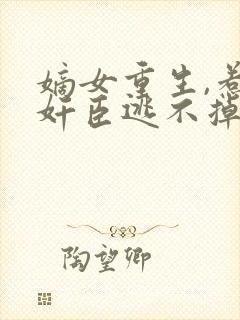 嫡女重生,惹
奸臣逃不掉
陶望卿